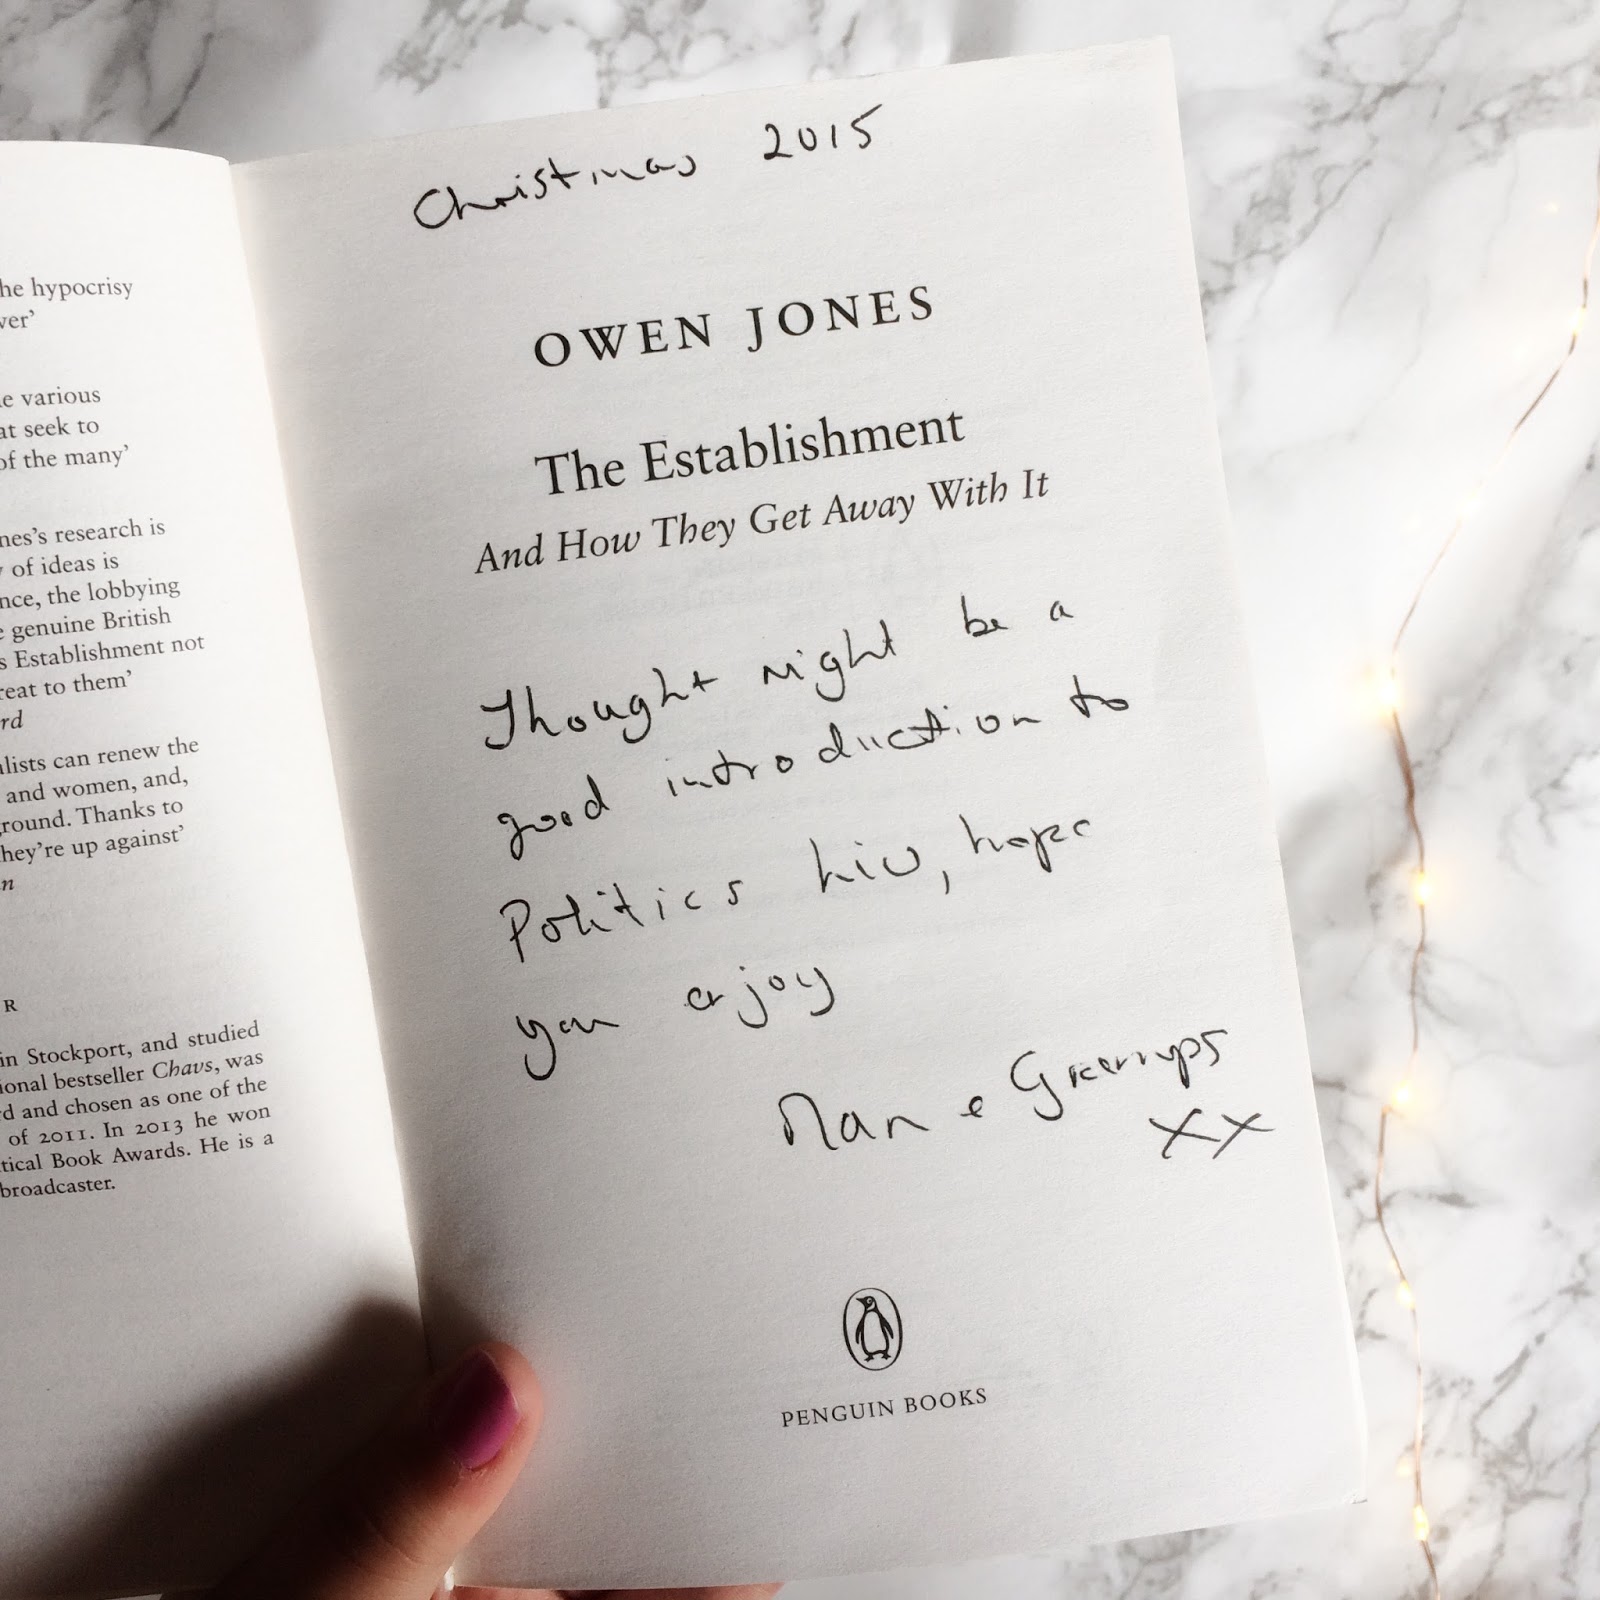 he hypocrisy
ver'
e various
at seek to
of the many'
nes's research is
y of ideas is
nce, the lobbying
e genuine British
s Establishment not
reat to them'
rd
alists can renew the
and women, and,
ground. Thanks to
they're up against'
n
R
in Stockport, and studied
ional bestseller Chavs, was
d and chosen as one of the
of 2011. In 2013 he won
tical Book Awards. He is a
broadcaster.
Christmas 2015
OWEN JONES
The Establishment
And How They Get Away With It
Thought might be a
good introduction to
Politics , hope
you enjoy
Nan e Gramps
XX
PENGUIN BOOKS